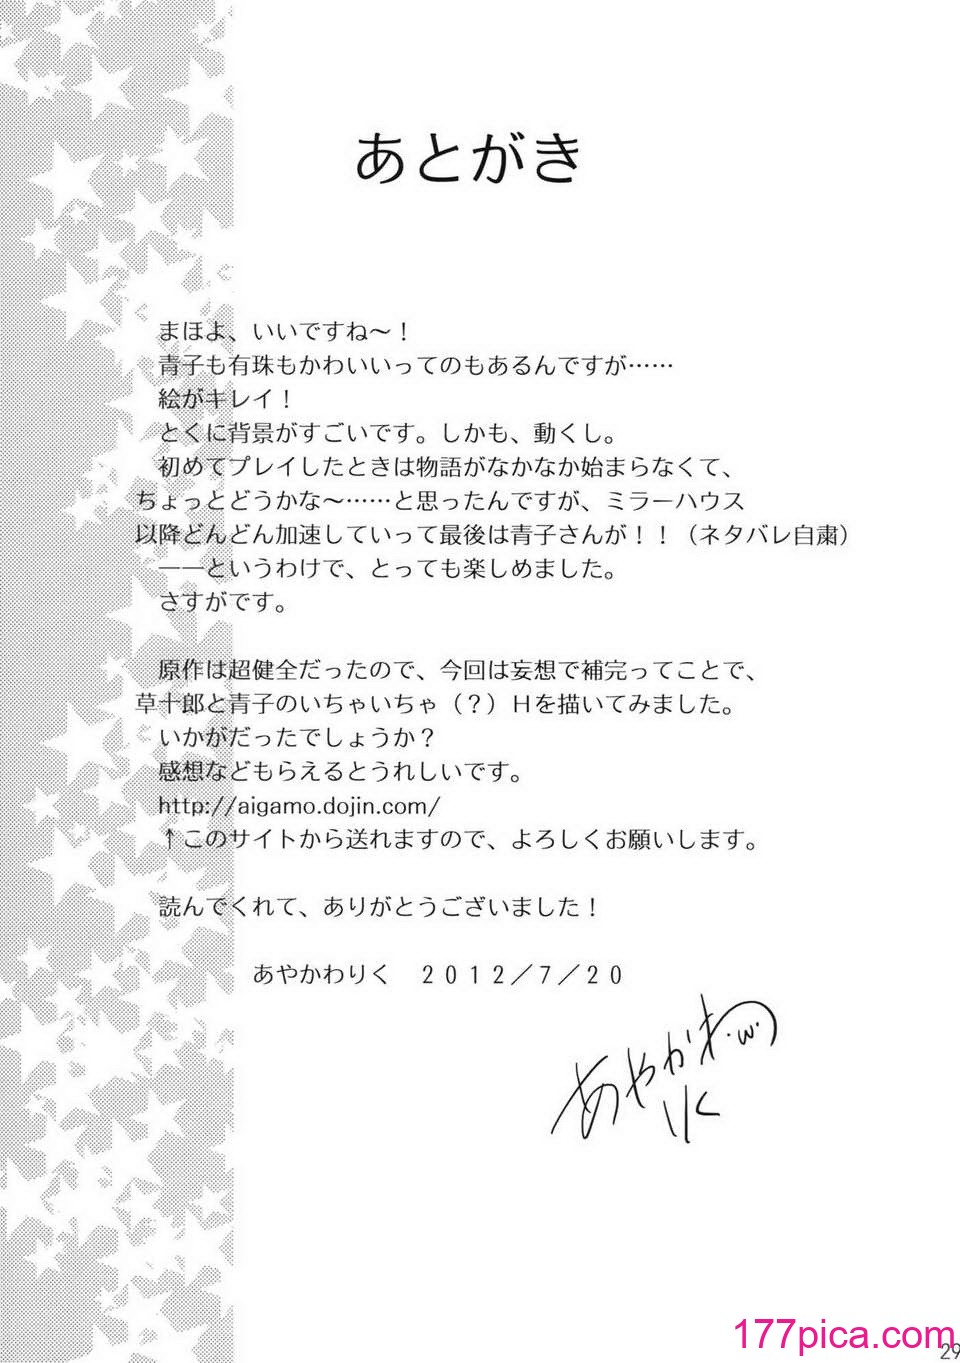 あとがき
まほよ、いいですね～！
青子も有珠もかわいいってのもあるんですが……
絵がキレイ！
とくに背景がすごいです。しかも、動くし。
初めてプレイしたときは物語がなかなか始まらなくて、
ちょっとどうかな～……と思ったんですが、ミラーハウス
以降どんどん加速していって最後は青子さんが！！（ネタバレ自粛）
――というわけで、とっても楽しめました。
さすがです。
原作は超健全だったので、今回は妄想で補完ってことで、
草十郎と青子のいちゃいちゃ（？）Ｈを描いてみました。
いかがだったでしょうか？
感想などもらえるとうれしいです。
http://aigamo.dojin.com/
↑このサイトから送れますので、よろしくお願いします。
読んでくれて、ありがとうございました！
あやかわりく　２０１２／７／２０
あやかわ
りく
177pica.com
29